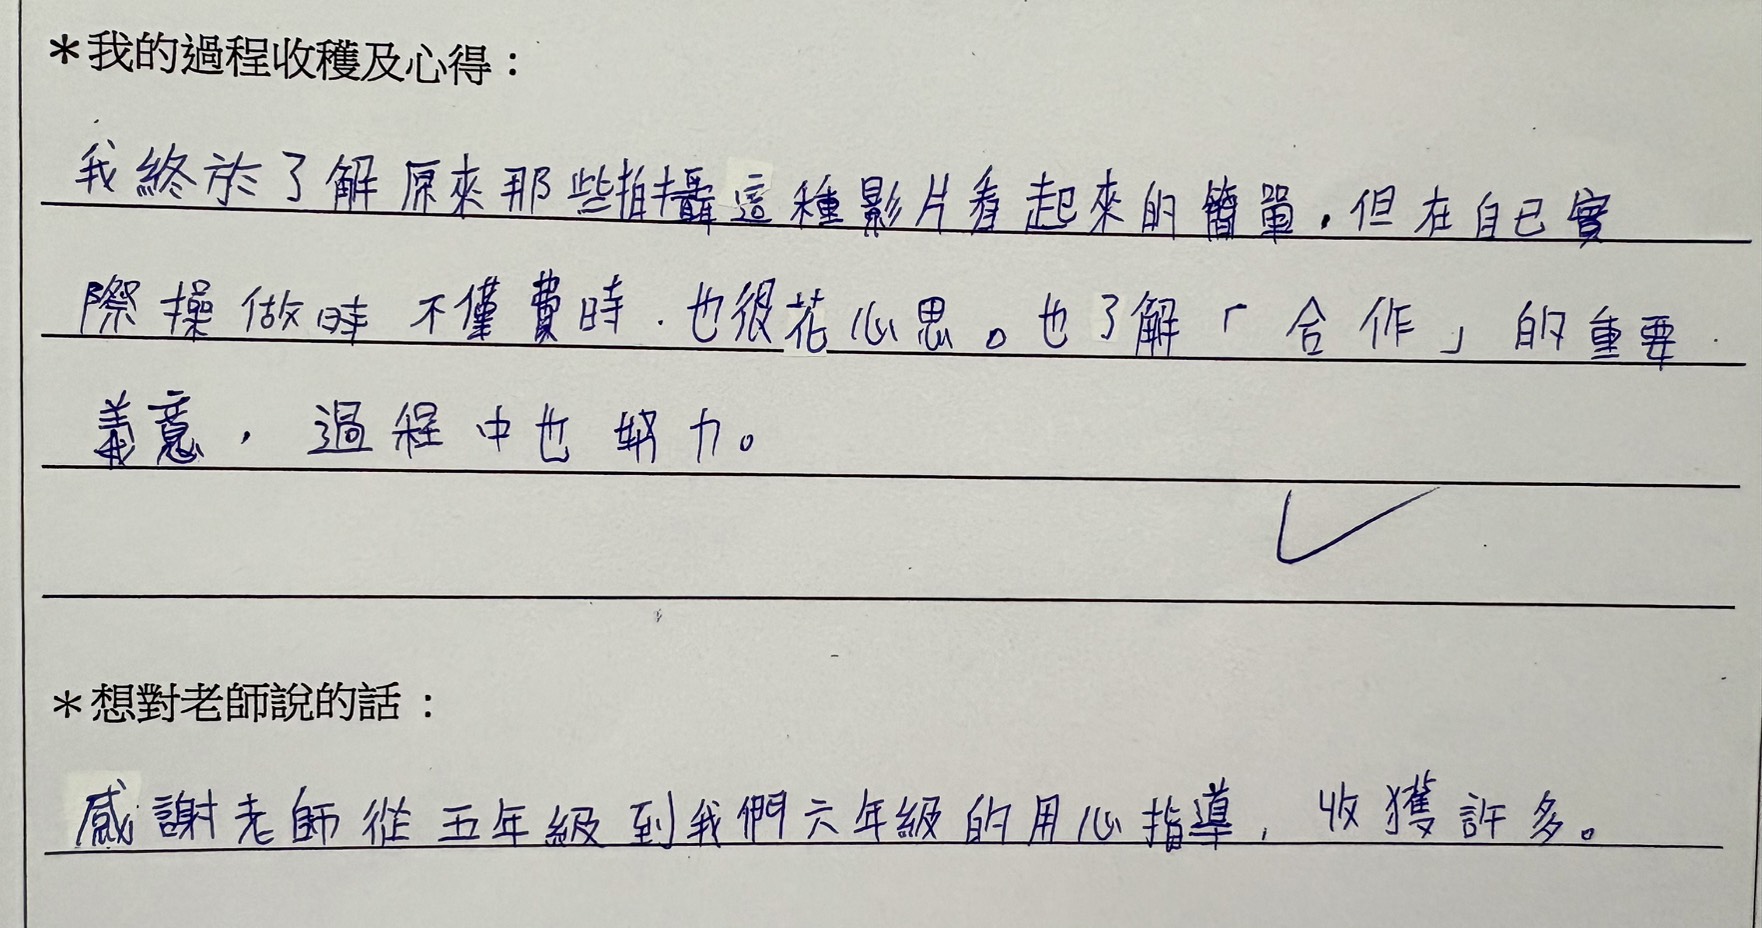 ＊我的過程收穫及心得：
我終於了解原來那些拍攝這種影片看起來的簡單，但在自已實
際操做時不僅費時，也很花心思。也了解「合作」的重要
義意，過程中也努力。
＊想對老師說的話：
感謝老師從五年級到我們六年級的用心指導，收獲許多。